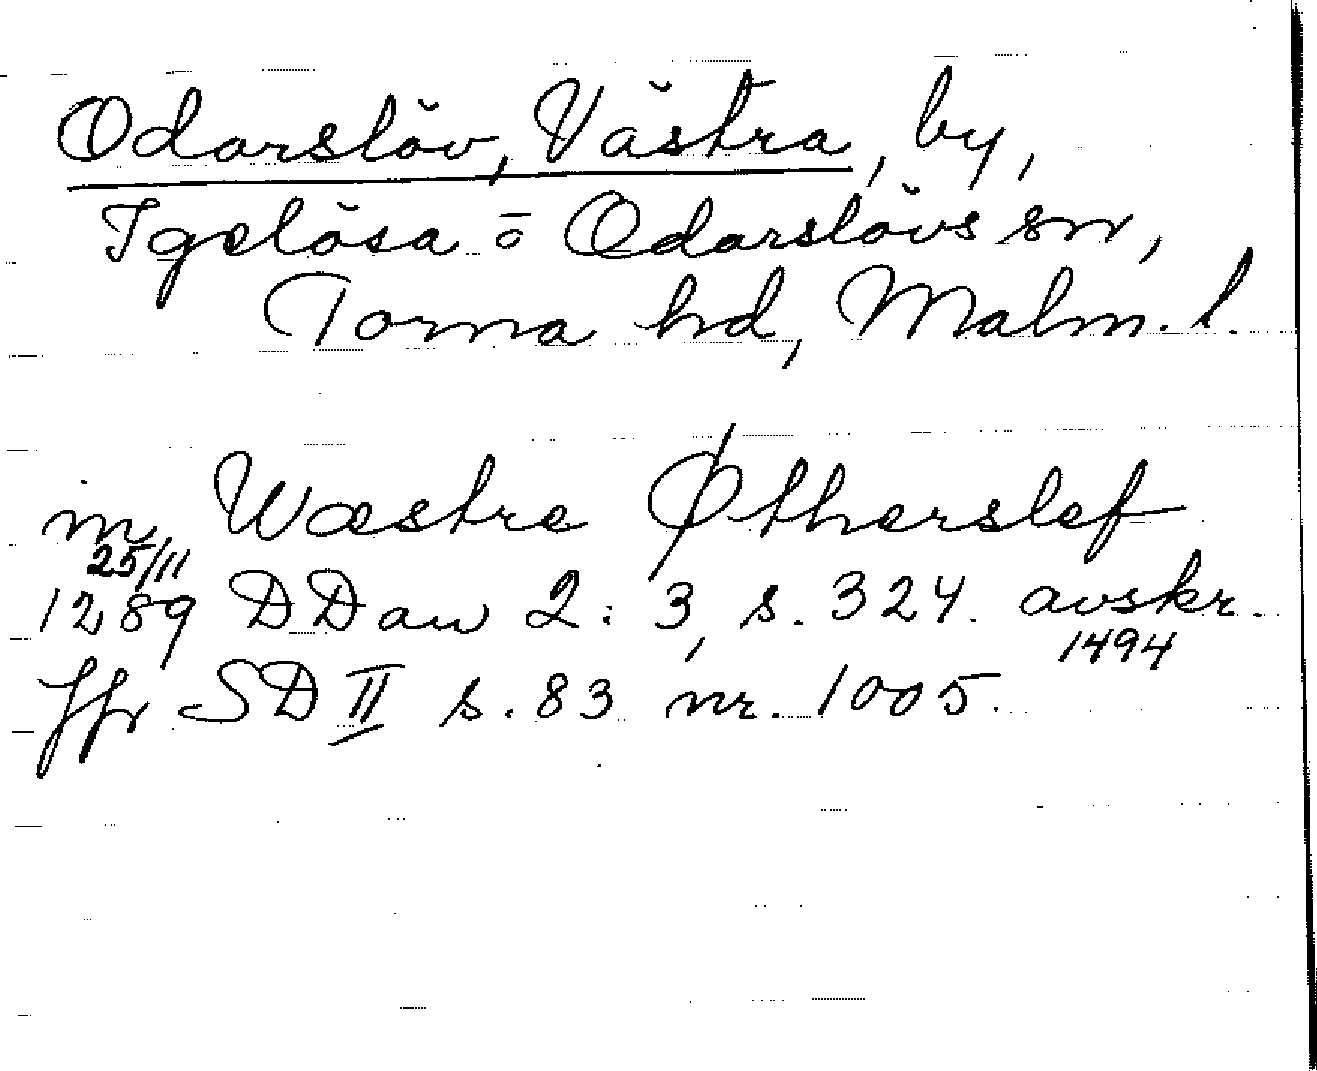 Odarslöv, Västra, by,
Igelösa o Odarslövs sn,
Torna hd, Malm. l.
in Wæstre Øtherslef
25/11
1289 DDan 2:3, s. 324. avskr.
1494
Jfr SD II s. 83 nr. 1005.